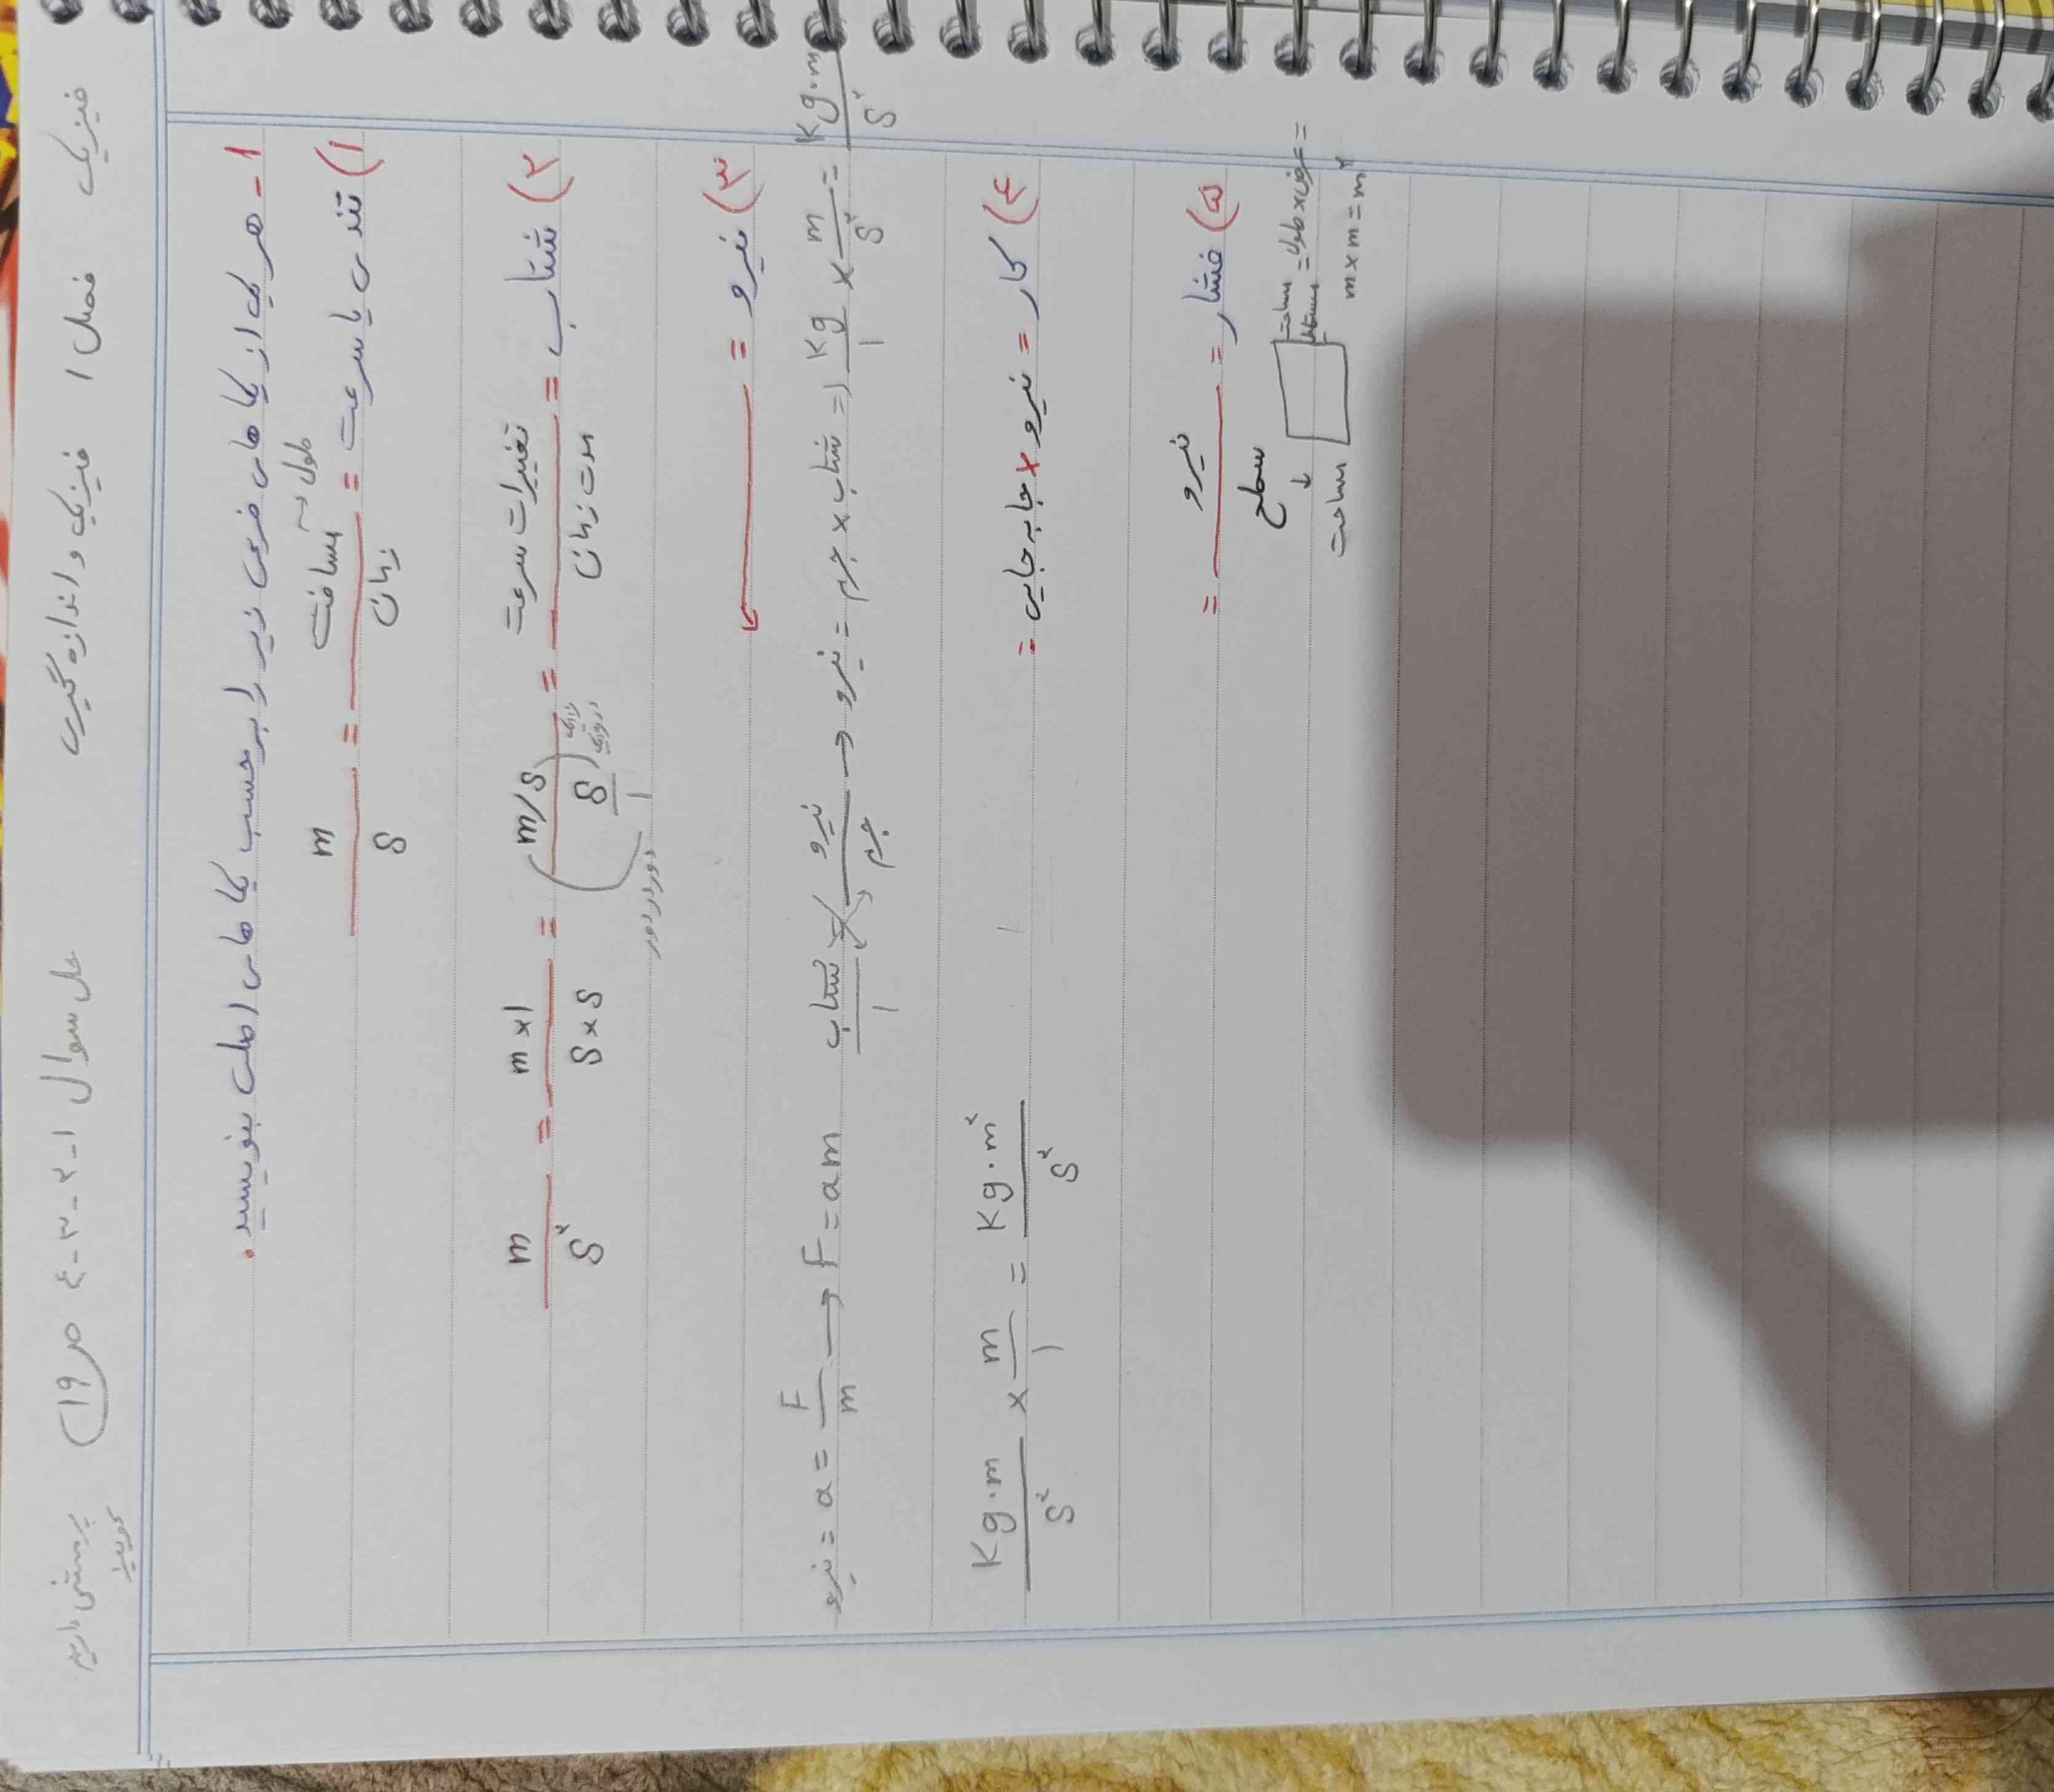 فیزیک فصل ۱ فیزیک و اندازه گیری حل سوال ۱-۲-۳-۴ ص ۱۹) پرسش داریم
۱- هر یک از یکا های فرعی زیر را برحسب یکا های اصلی بنویسید.
طول
۱) تندی یا سرعت = مسافت / زمان = m / s
۲) شتاب = تغییرات سرعت / مدت زمان = (m/s) / (s/۱) = m×۱ / s×s = m / s²
نزدیک در نزدیک
دور در دور
۳) نیرو =
نیرو = a = F/m → F = am شتاب/۱ = نیرو/جرم → نیرو = جرم × شتاب => Kg/۱ × m/s² = Kg.m/s²
۴) کار = نیرو × جابه جایی = Kg.m/s² × m/۱ = Kg.m²/s²
۵) فشار = نیرو / سطح =
مساحت
مساحت مستطیل = طول × عرض =
m × m = m²